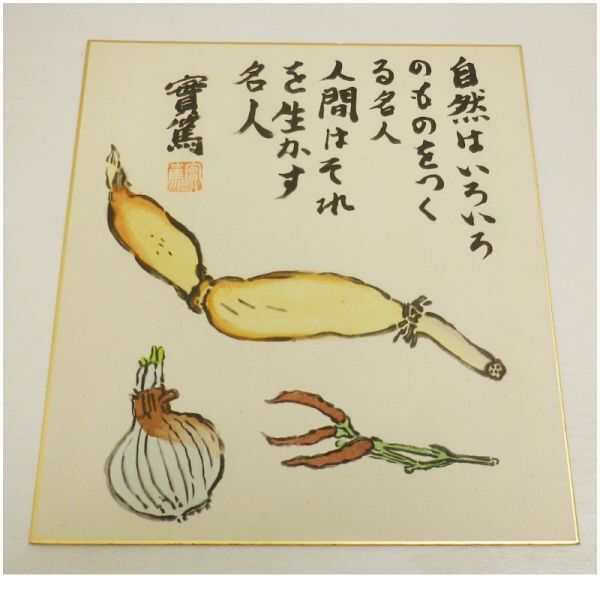 自然はいろいろ
のものをつく
る名人
人間はそれ
を生かす
名人
實篤
實篤